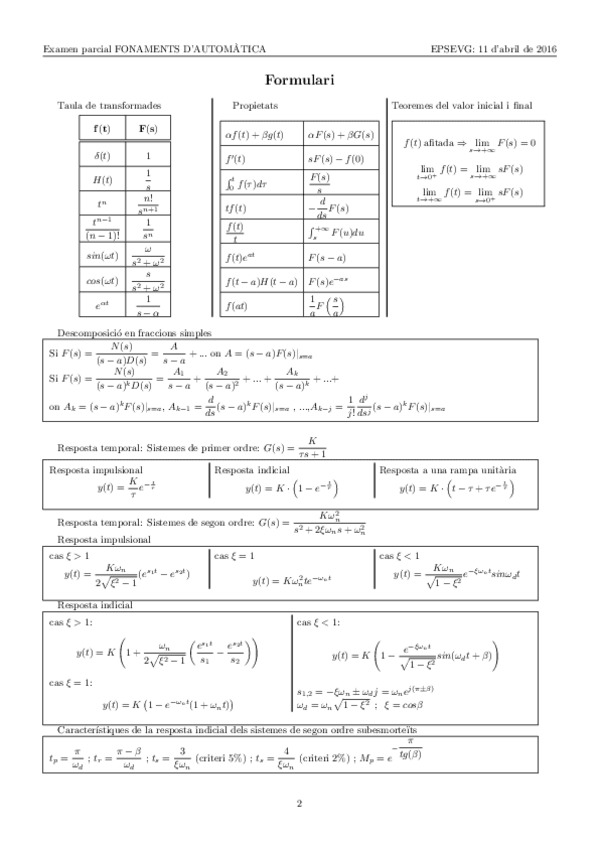 Examen parcial FONAMENTS D'AUTOMÀTICA EPSEVG: 11 d'abril de 2016
Formulari
Taula de transformades
f(t) F(s)
δ(t) 1
H(t) 1/s
tⁿ n!/sⁿ⁺¹
tⁿ⁻¹/(n − 1)! 1/sⁿ
sin(ωt) ω/(s² + ω²)
cos(ωt) s/(s² + ω²)
e^{αt} 1/(s − α)
Propietats
αf(t) + βg(t) αF(s) + βG(s)
f'(t) sF(s) − f(0)
∫₀ᵗ f(τ)dτ F(s)/s
tf(t) −d/ds F(s)
f(t)/t ∫ₛ^{+∞} F(u)du
f(t)e^{at} F(s − a)
f(t − a)H(t − a) F(s)e^{−as}
f(at) 1/a F(s/a)
Teoremes del valor inicial i final
f(t) afitada ⇒ lim_{s→+∞} F(s) = 0
lim_{t→0⁺} f(t) = lim_{s→+∞} sF(s)
lim_{t→+∞} f(t) = lim_{s→0⁺} sF(s)
Descomposició en fraccions simples
Si F(s) = N(s)/((s − a)D(s)) = A/(s − a) + ... on A = (s − a)F(s)|_{s=a}
Si F(s) = N(s)/((s − a)^k D(s)) = A₁/(s − a) + A₂/(s − a)² + ... + A_k/(s − a)^k + ...+
on A_k = (s − a)^k F(s)|_{s=a}, A_{k−1} = d/ds (s − a)^k F(s)|_{s=a} , ...,A_{k−j} = 1/j! d^j/ds^j (s − a)^k F(s)|_{s=a}
Resposta temporal: Sistemes de primer ordre: G(s) = K/(τs + 1)
Resposta impulsional
y(t) = K/τ e^{−t/τ}
Resposta indicial
y(t) = K · (1 − e^{−t/τ})
Resposta a una rampa unitària
y(t) = K · (t − τ + τe^{−t/τ})
Resposta temporal: Sistemes de segon ordre: G(s) = Kω_n²/(s² + 2ξω_n s + ω_n²)
Resposta impulsional
cas ξ > 1
y(t) = Kω_n/(2√(ξ² − 1)) (e^{s₁t} − e^{s₂t})
cas ξ = 1
y(t) = Kω_n² te^{−ω_n t}
cas ξ < 1
y(t) = Kω_n/√(1 − ξ²) e^{−ξω_n t} sinω_d t
Resposta indicial
cas ξ > 1:
y(t) = K (1 + ω_n/(2√(ξ² − 1)) (e^{s₁t}/s₁ − e^{s₂t}/s₂))
cas ξ = 1:
y(t) = K (1 − e^{−ω_n t}(1 + ω_n t))
cas ξ < 1:
y(t) = K (1 − e^{−ξω_n t}/√(1 − ξ²) sin(ω_d t + β))
s_{1,2} = −ξω_n ± ω_d j = ω_n e^{j(π±β)}
ω_d = ω_n √(1 − ξ²) ; ξ = cosβ
Característiques de la resposta indicial dels sistemes de segon ordre subesmorteïts
t_p = π/ω_d ; t_r = (π − β)/ω_d ; t_s = 3/(ξω_n) (criteri 5%) ; t_s = 4/(ξω_n) (criteri 2%) ; M_p = e^{−π/tg(β)}
2